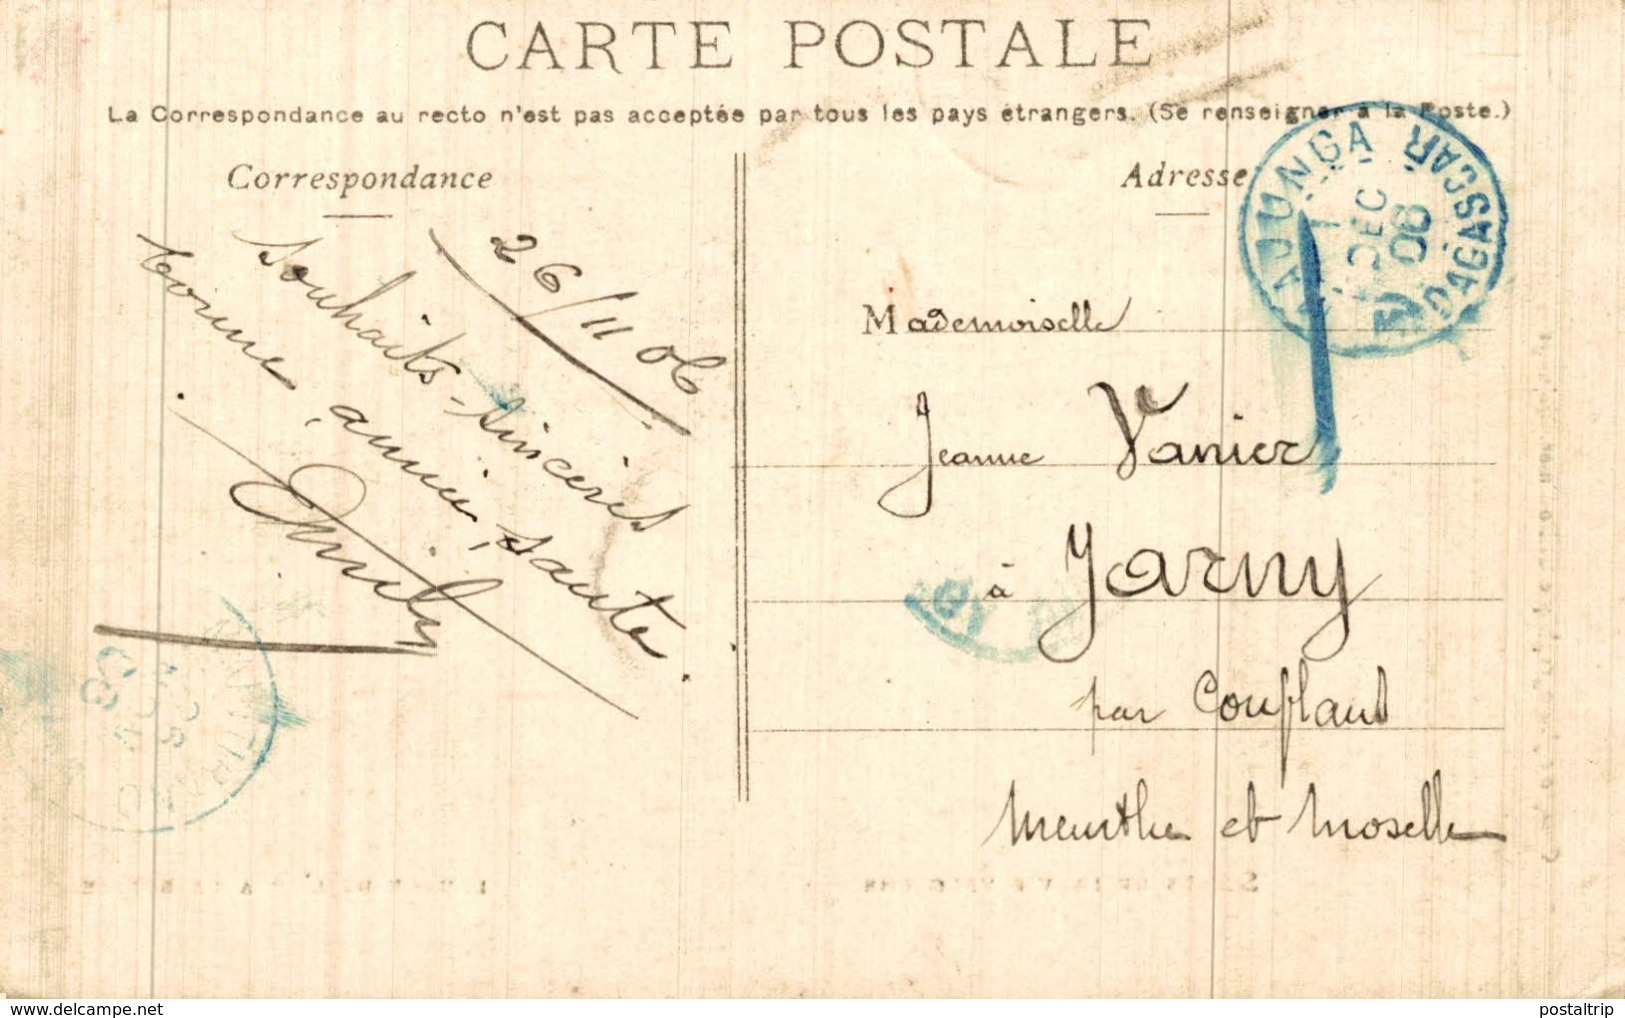 CARTE POSTALE
La Correspondance au recto n'est pas acceptée par tous les pays étrangers. (Se renseigner à la Poste.)
Correspondance
26/11 06
Souhaits sincères
bonne année, santé.
Adresse
MAJUNGA
1
DEC
06
MADAGASCAR
Mademoiselle
Jeanne Vanier
à Jarny
par Conflans
Meurthe et Moselle
postaltrip